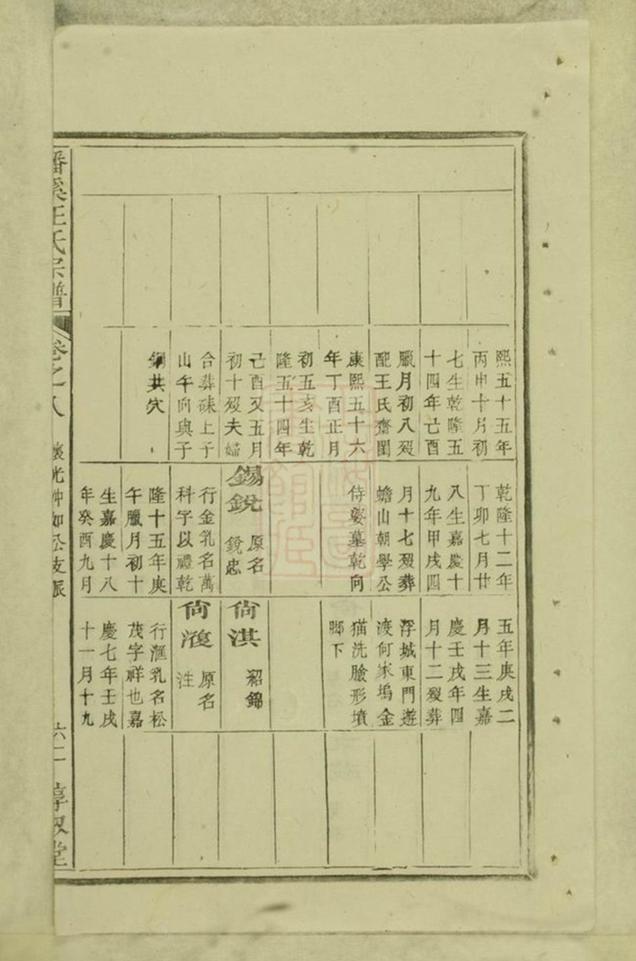 熙五十五年
丙申十月初
七生乾隆五
十四年己酉
臘月初八歿
配王氏齋閨
康熙五十六
年丁酉正月
初五亥生乾
隆五十四年
己酉又五月
初十歿夫婦
合葬硃上子
山午向與子
共穴
乾隆十二年
丁卯七月廿
八生嘉慶十
九年甲戌四
月十七歿葬
蟾山朝學公
侍婆墓乾向
錫銳 原名
鏡忠
行金乳名萬
科字以禮乾
隆十五年庚
午臘月初十
生嘉慶十八
年癸酉九月
五年庚戌二
月十三生嘉
慶壬戌年四
月十二歿葬
浮城東門遊
渡何家塢金
猫洗臉形墳
脚下
尙洪 紹錦
尙 原名
行滙乳名松
茂字祥也嘉
慶七年壬戌
十一月十九
王氏宗譜
卷之八
六二
堂